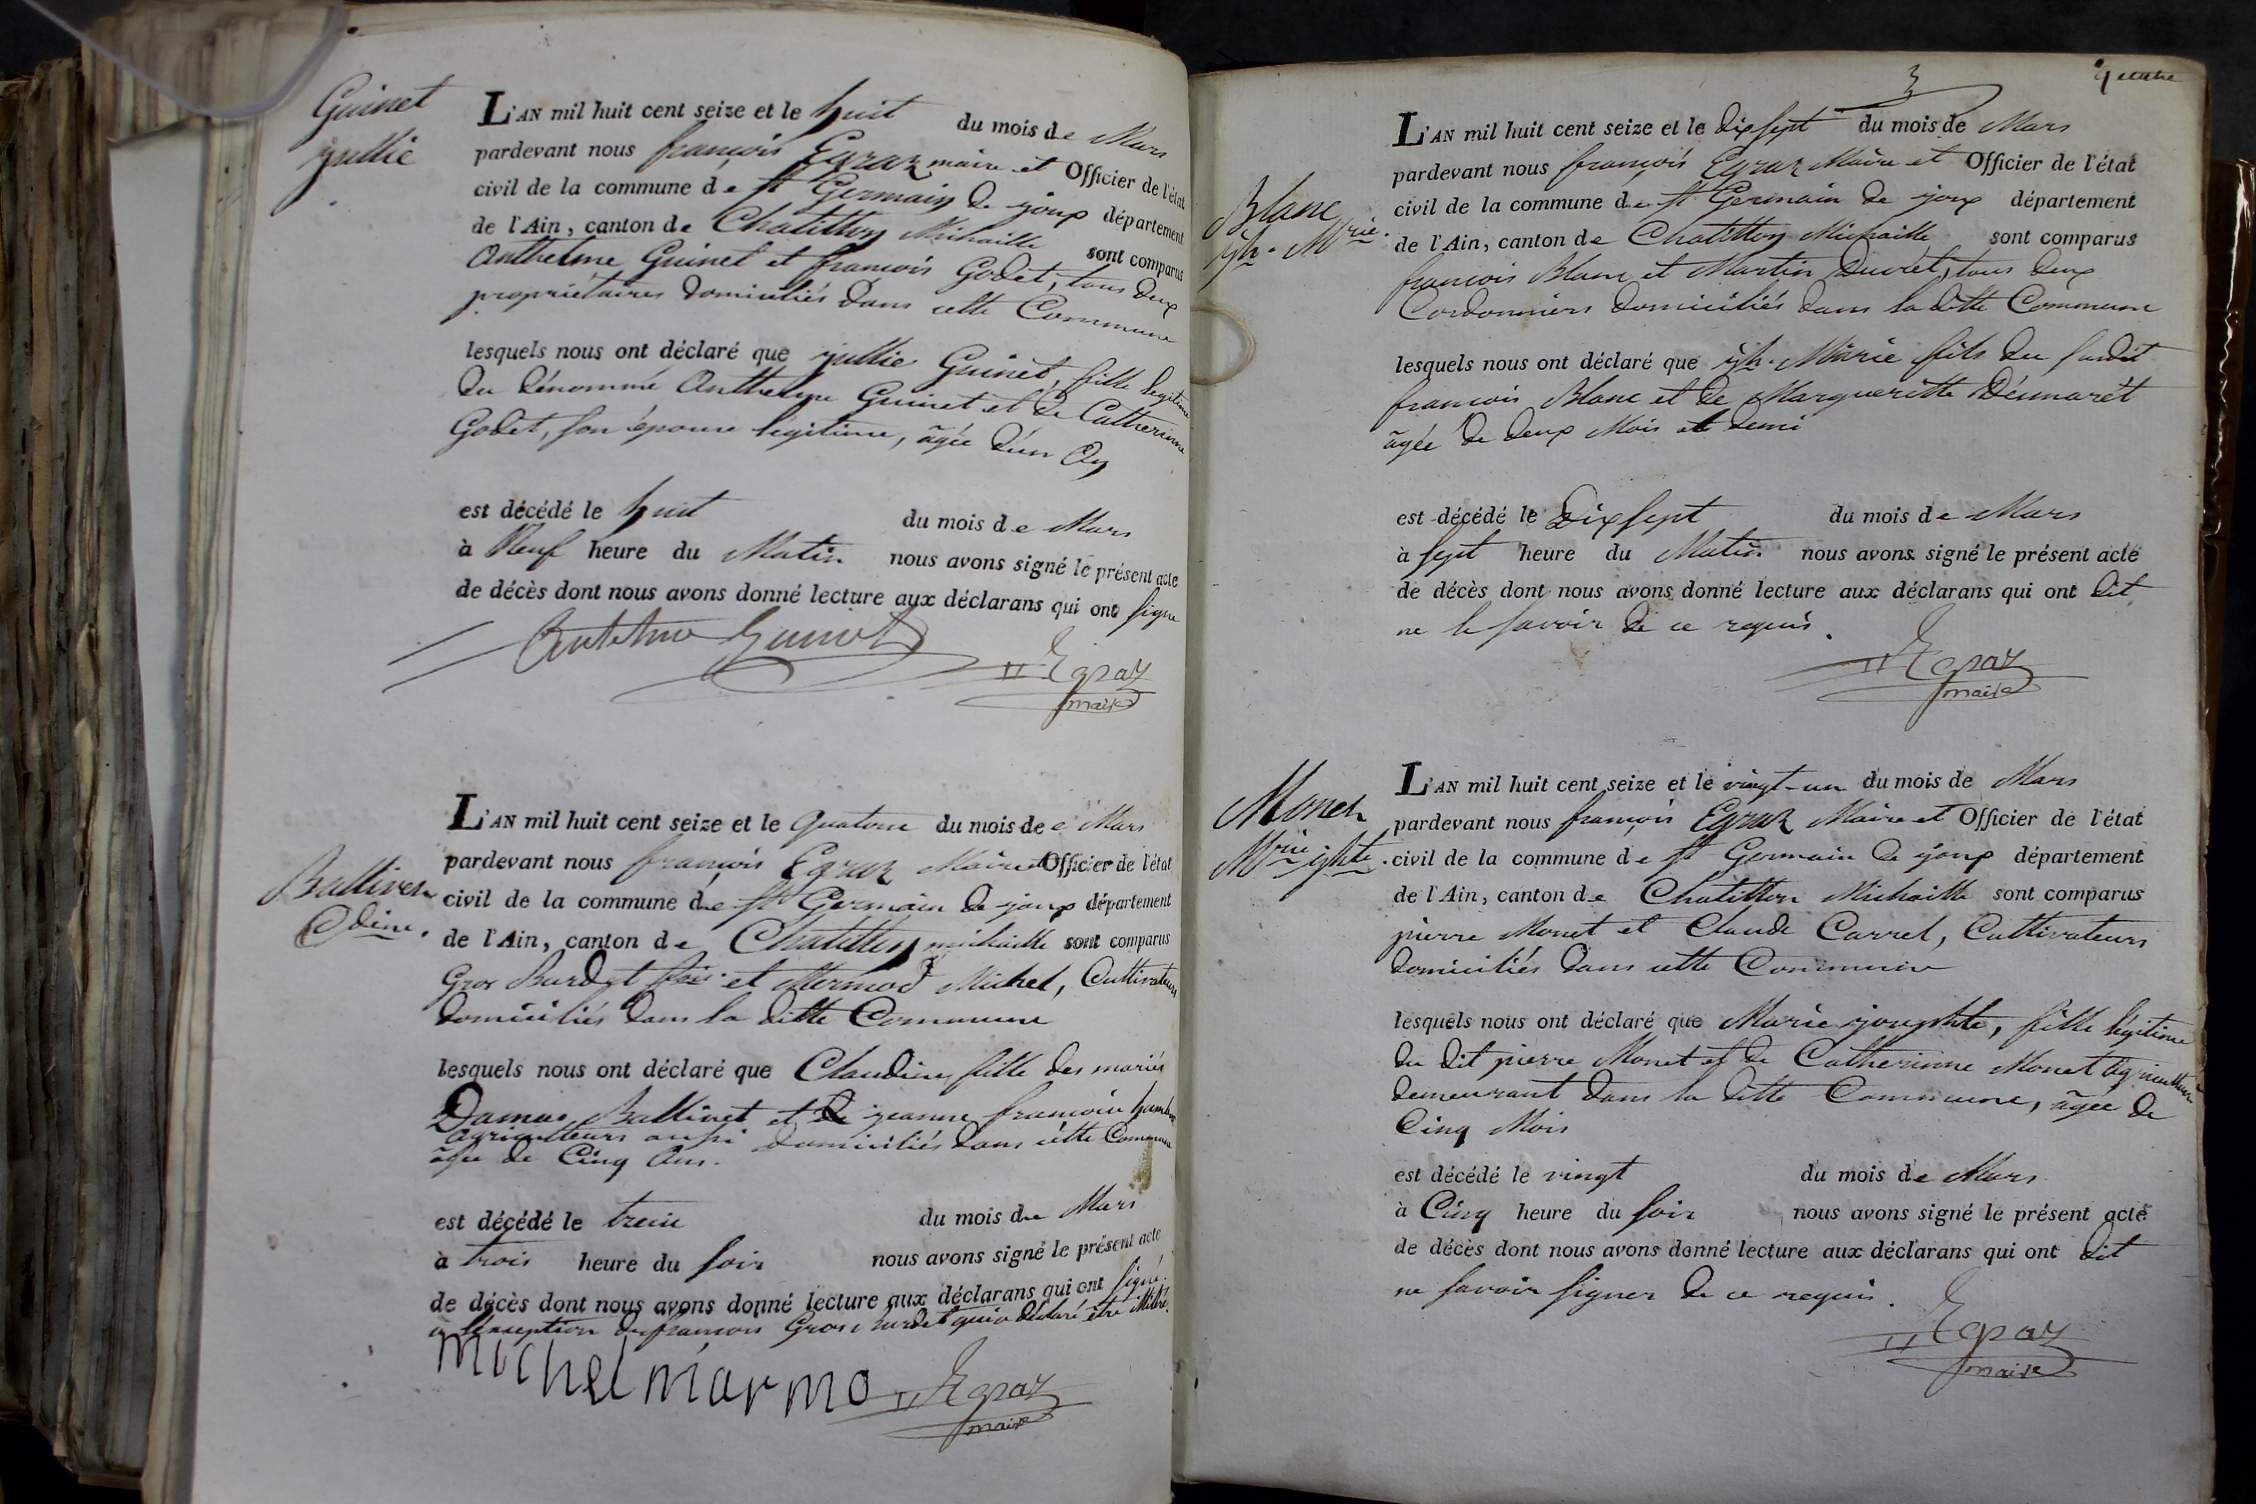 Guinet
jullie
L'AN mil huit cent seize et le huit du mois de Mars
pardevant nous françois Egraz maire et Officier de l'état
civil de la commune de St Germain de joux département
de l'Ain, canton de Chatillon Michaille sont comparus
Anthelme Guinet et francois Godet, tous deux
propriétaires domiciliés dans cette Commune
lesquels nous ont déclaré que jullie Guinet, fille legitime
du dénommé Anthelme Guinet et de Catherinne
Godet, son épouse légitime, âgée d'un An
est décédé le huit du mois de Mars
à Neuf heure du Matin nous avons signé le présent acte
de décès dont nous avons donné lecture aux déclarans qui ont signé
Antelme Guinet
Egraz
maire
Ballivet
Cdine.
L'AN mil huit cent seize et le quatorze du mois de Mars
pardevant nous françois Egraz Maire et Officier de l'état
civil de la commune de St Germain de joux département
de l'Ain, canton de Chatillon michaille sont comparus
Gros Burdet fcois et Mermod Michel, Cultivateurs
domiciliés dans la ditte Commune
lesquels nous ont déclaré que Claudine fille des mariés
Damas Ballivet et de jeanne francoise
agriculteurs aussi domiciliés dans cette Commune
âgée de Cinq Ans.
est décédé le treize du mois de Mars
à trois heure du soir nous avons signé le présent acte
de décès dont nous avons donné lecture aux déclarans qui ont signé
à l'exseption de francois Gros Burdet qui a déclaré être illitré.
Michel marmo
Egraz
maire
3
quatre
Blanc
jph. Mrie.
L'AN mil huit cent seize et le dix sept du mois de Mars
pardevant nous françois Egraz Maire et Officier de l'état
civil de la commune de St Germain de joux département
de l'Ain, canton de Chatillon Michaille sont comparus
francois Blanc et Martin Ducret, tous deux
Cordonniers domiciliés dans la ditte Commune
lesquels nous ont déclaré que jph. Marie fils du susdit
francois Blanc et de Margueritte Démarêt
âgée de deux Mois et demi
est décédé le Dix sept du mois de Mars
à sept heure du Matin nous avons signé le présent acte
de décès dont nous avons donné lecture aux déclarans qui ont dit
ne le savoir de ce requis.
Egraz
maire
Monet
Mrie jphte.
L'AN mil huit cent seize et le vingt-un du mois de Mars
pardevant nous françois Egraz Maire et Officier de l'état
civil de la commune de St Germain de joux département
de l'Ain, canton de Chatillon Michaille sont comparus
pierre Monet et Claude Carrel, Cultivateurs
domiciliés dans cette Commune
lesquels nous ont déclaré que Marie josephte, fille légitime
du dit pierre Monet et de Catherinne Monet agriculteurs
demeurant dans la ditte Commune, âgée de
Cinq Mois
est décédé le vingt du mois de Mars
à Cinq heure du soir nous avons signé le présent acte
de décès dont nous avons donné lecture aux déclarans qui ont dit
ne savoir signer de ce requis.
Egraz
maire